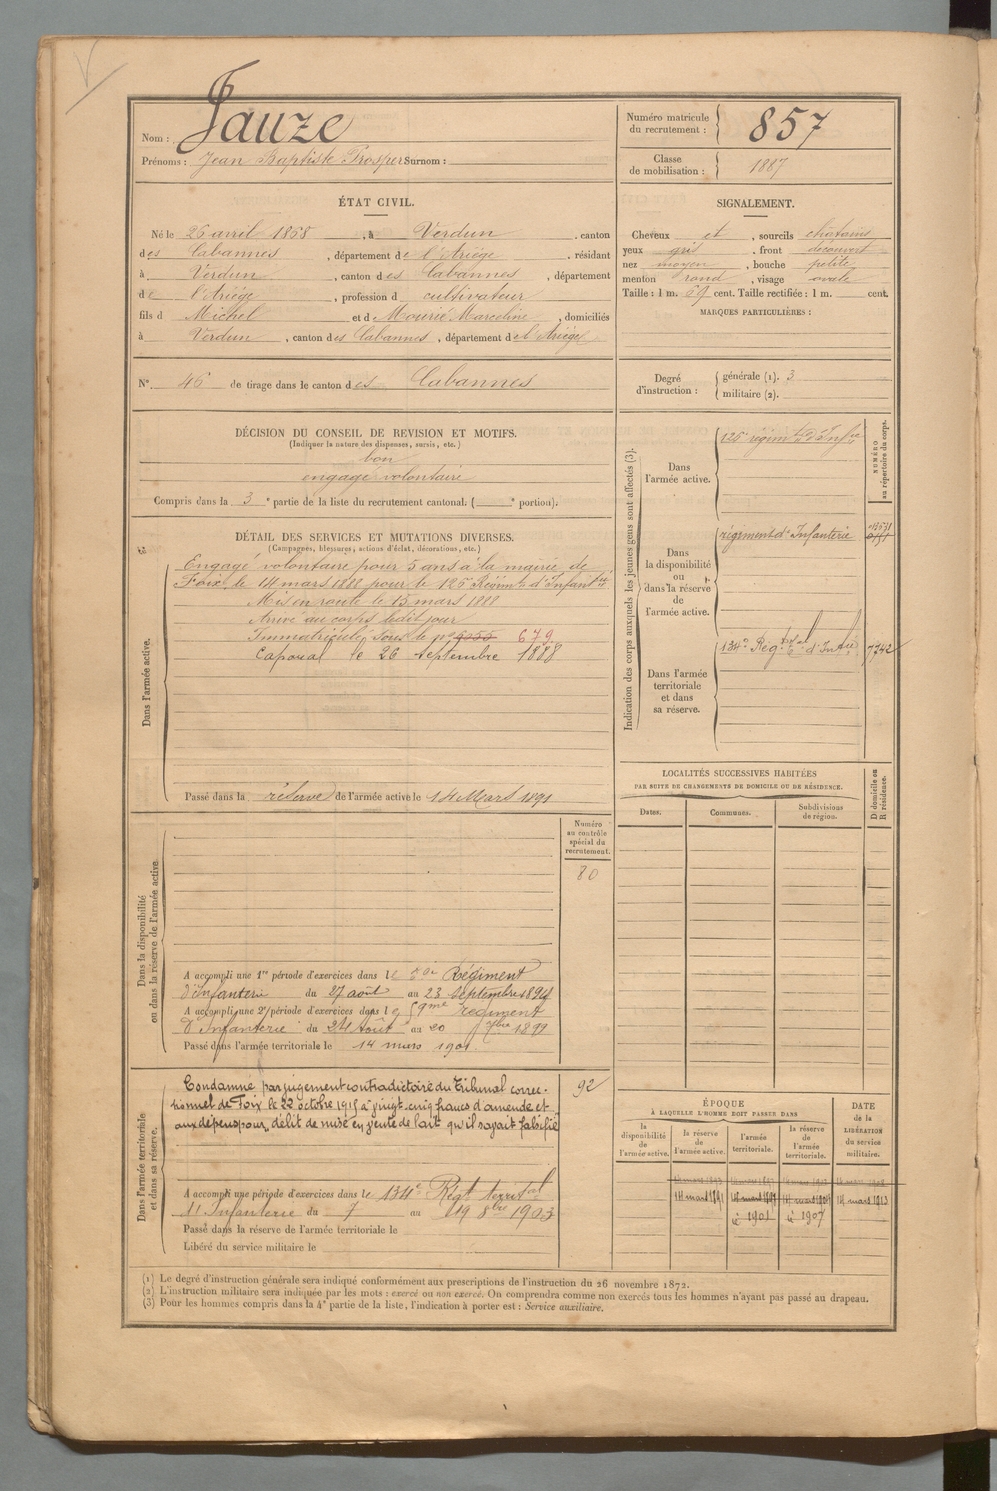 Nom : Jauze
Prénoms : Jean Baptiste Prosper Surnom :
Numéro matricule du recrutement : 857
Classe de mobilisation : 1887
ÉTAT CIVIL.
Né le 26 avril 1868, à Verdun, canton
des Cabannes, département de l'Ariège, résidant
à Verdun, canton des Cabannes, département
de l'Ariège, profession d cultivateur
fils d Michel et d Mourié Marceline, domiciliés
à Verdun, canton des Cabannes, département de l'Ariège
SIGNALEMENT.
Cheveux et, sourcils châtains
yeux gris, front découvert
nez moyen, bouche petite
menton rond, visage ovale
Taille : 1 m. 69 cent. Taille rectifiée : 1 m. cent.
MARQUES PARTICULIÈRES :
N°. 46 de tirage dans le canton des Cabannes
Degré d'instruction :
générale (1). 3
militaire (2).
DÉCISION DU CONSEIL DE REVISION ET MOTIFS.
(Indiquer la nature des dispenses, sursis, etc.)
bon
engagé volontaire
Compris dans la 3e partie de la liste du recrutement cantonal. ( e portion).
DÉTAIL DES SERVICES ET MUTATIONS DIVERSES.
(Campagnes, blessures, actions d'éclat, décorations, etc.)
Dans l'armée active.
Engagé volontaire pour 5 ans à la mairie de
Foix le 14 mars 1888 pour le 126e Régim t d'Infant ie
Mis en route le 15 mars 1888
Arrivé au corps ledit jour
Immatriculé sous le n° 679
Caporal le 26 septembre 1888
Passé dans la réserve de l'armée active le 14 Mars 1891
Indication des corps auxquels les jeunes gens sont affectés (3).
NUMÉRO au répertoire du corps.
Dans l'armée active.
126e régiment d'Inf re
Dans la disponibilité ou dans la réserve de l'armée active.
régiment d'Infanterie
Dans l'armée territoriale et dans sa réserve.
134e Reg t t al d'Inf ie 7742
LOCALITÉS SUCCESSIVES HABITÉES
PAR SUITE DE CHANGEMENTS DE DOMICILE OU DE RÉSIDENCE.
Dates.
Communes.
Subdivisions de région.
D domicile ou R résidence.
Numéro au contrôle spécial du recrutement.
80
Dans la disponibilité ou dans la réserve de l'armée active.
A accompli une 1re période d'exercices dans le 59e Régiment
d'Infanterie du 27 août au 23 septembre 1894
A accompli une 2e période d'exercices dans le 59me régiment
d'Infanterie du 24 août au 20 7bre 1899
Passé dans l'armée territoriale le 14 mars 1901
Dans l'armée territoriale et dans sa réserve.
Condamné par jugement contradictoire du Tribunal correc-
tionnel de Foix le 22 octobre 1915 à vingt-cinq francs d'amende et
aux dépens pour délit de mise en vente de lait qu'il savait falsifié
92
A accompli une période d'exercices dans le 134e Régt territ al
d'Infanterie du 7 au 19 8bre 1903
Passé dans la réserve de l'armée territoriale le
Libéré du service militaire le
ÉPOQUE
À LAQUELLE L'HOMME DOIT PASSER DANS
la disponibilité de l'armée active.
la réserve de l'armée active.
l'armée territoriale.
la réserve de l'armée territoriale.
DATE de la LIBÉRATION du service militaire.
14 mars 1891 14 mars 1897 14 mars 1904 14 mars 1913
1901 1907
(1) Le degré d'instruction générale sera indiqué conformément aux prescriptions de l'instruction du 26 novembre 1872.
(2) L'instruction militaire sera indiquée par les mots : exercé ou non exercé. On comprendra comme non exercés tous les hommes n'ayant pas passé au drapeau.
(3) Pour les hommes compris dans la 4e partie de la liste, l'indication à porter est : Service auxiliaire.